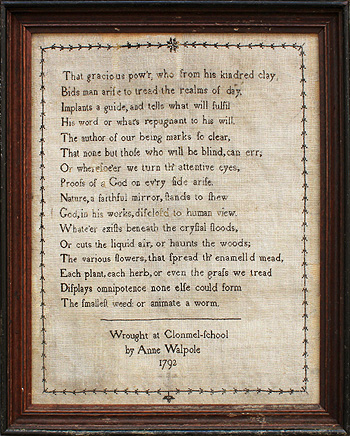 That gracious pow'r, who from his kindred clay,
Bids man ariſe to tread the realms of day,
Implants a guide, and tells what will fulfil
His word or what's repugnant to his will.
The author of our being marks ſo clear,
That none but thoſe who will be blind, can err;
Or whereſoe'er we turn th' attentive eyes,
Proofs of a God on ev'ry ſide ariſe.
Nature, a faithful mirror, ſtands to ſhew
God, in his works, diſcloſ'd to human view.
Whate'er exiſts beneath the cryſtal floods,
Or cuts the liquid air, or haunts the woods;
The various flowers, that ſpread th' enamell'd mead,
Each plant, each herb, or even the graſs we tread
Diſplays omnipotence none elſe could form
The ſmalleſt weed: or animate a worm.
Wrought at Clonmel-ſchool
by Anne Walpole
1792